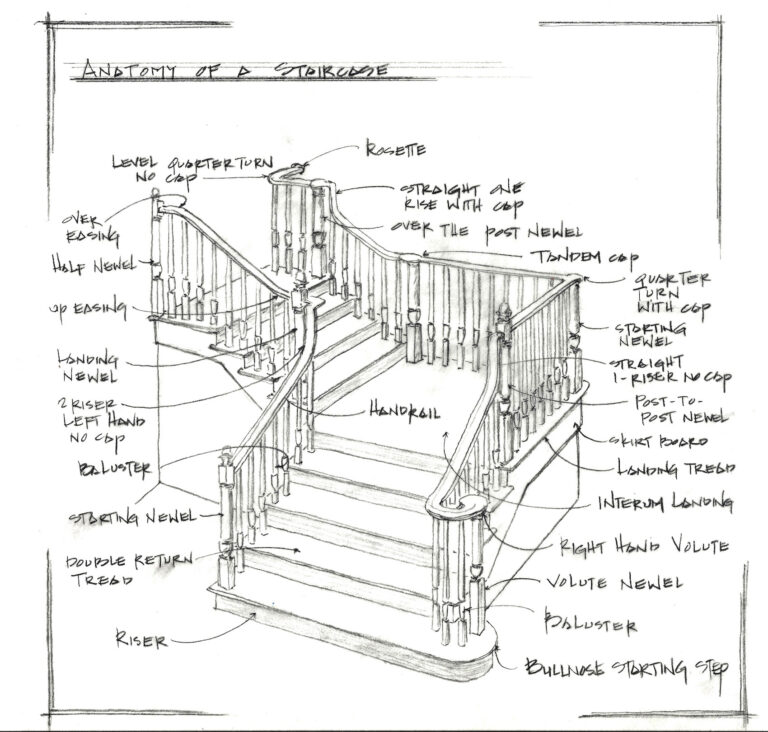 ANATOMY OF A STAIRCASE
ROSETTE
LEVEL QUARTER TURN
NO CAP
STRAIGHT ONE
RISE WITH CAP
OVER
EASING
OVER THE POST NEWEL
TANDEM CAP
HALF NEWEL
QUARTER
TURN
WITH CAP
UP EASING
STARTING
NEWEL
LANDING
NEWEL
STRAIGHT
1-RISER NO CAP
2 RISER
LEFT HAND
NO CAP
HANDRAIL
POST-TO-
POST NEWEL
SKIRT BOARD
BALUSTER
LANDING TREAD
INTERUM LANDING
STARTING NEWEL
RIGHT HAND VOLUTE
DOUBLE RETURN
TREAD
VOLUTE NEWEL
BALUSTER
RISER
BULLNOSE STARTING STEP